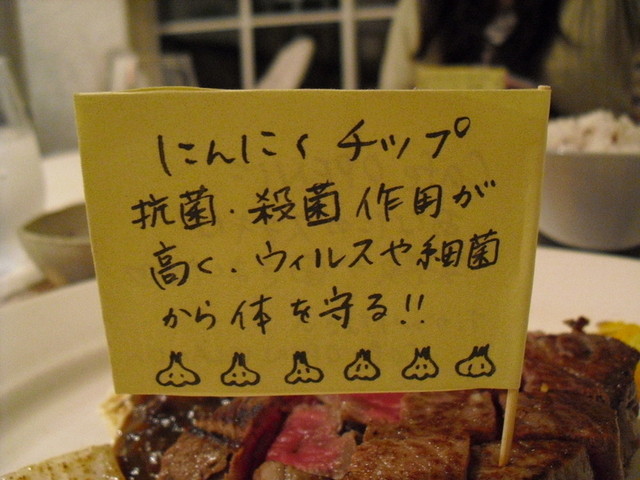 にんにくチップ
抗菌・殺菌作用が
高く、ウィルスや細菌
から体を守る!!